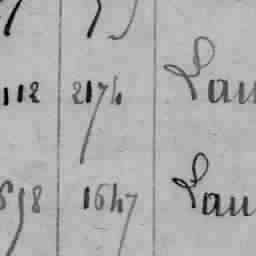 112 2174 Lau
658 1647 Lau